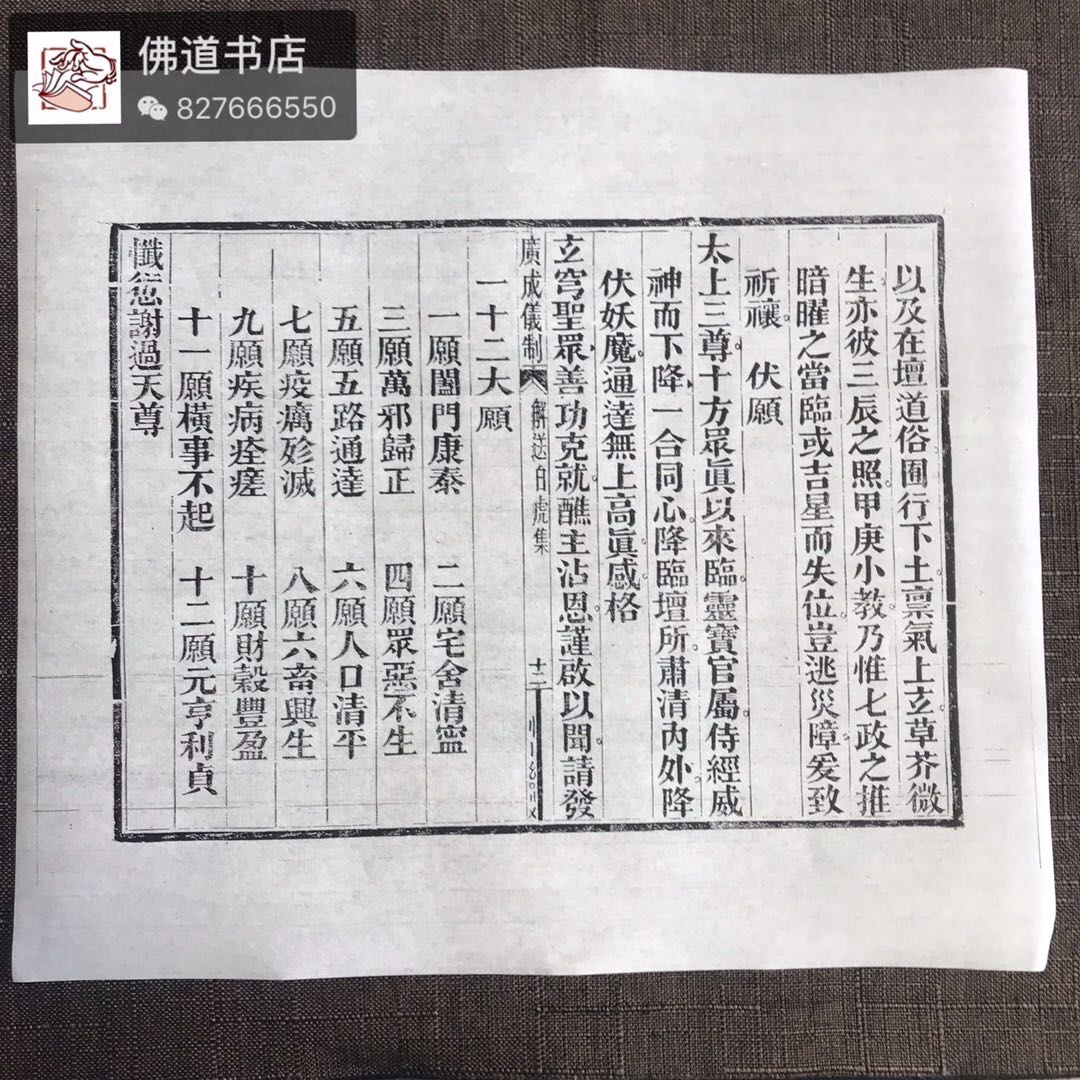 佛道书店
827666550
以及在壇道俗囿行下土禀氣上玄草芥微
生亦彼三辰之照甲庚小教乃惟七政之推
暗曜之當臨或吉星而失位豈逃災障爰致
祈禳 伏願
太上三尊十方眾眞以來臨靈寶官屬侍經威
神而下降一合同心降臨壇所肅清內外降
伏妖魔通達無上高眞感格
玄穹聖眾善功克就醮主沾恩謹啟以聞請發
廣成儀制 解送白虎集 十二
一十二大願
一願闔門康泰 二願宅舍清寧
三願萬邪歸正 四願眾惡不生
五願五路通達 六願人口清平
七願疫癘殄滅 八願六畜興生
九願疾病痊瘥 十願財穀豐盈
十一願橫事不起 十二願元亨利貞
懺愆謝過天尊